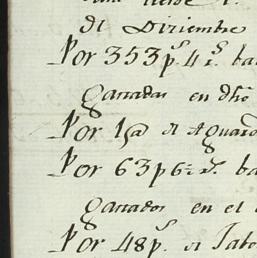 di Diziembre
Por 353 p.s 4 r.s ba
gastadas en dho
Por 1 @ di Aguard
Por 63 p 6 r.s ba
gastados en el
Por 48 p.s di Jabo